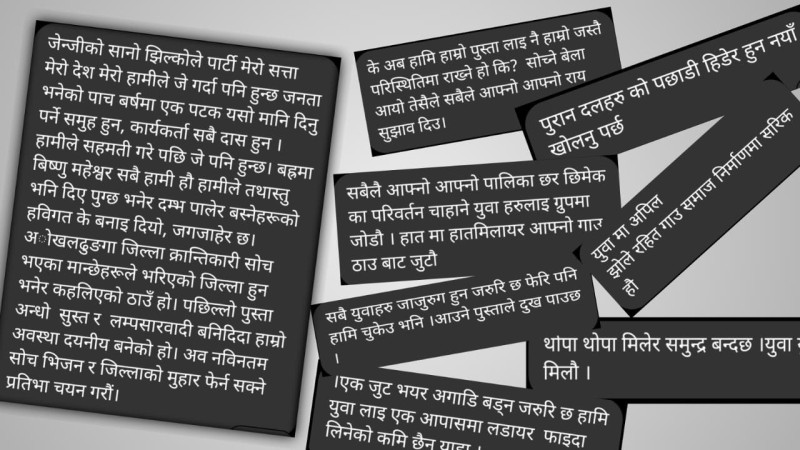 जेन्जीको सानो झिल्कोले पार्टी मेरो सत्ता
मेरो देश मेरो हामीले जे गर्दा पनि हुन्छ जनता
भनेको पाच बर्षमा एक पटक यसो मानि दिनु
पर्ने समुह हुन, कार्यकर्ता सबै दास हुन ।
हामीले सहमती गरे पछि जे पनि हुन्छ। बह्रमा
बिष्णु महेश्वर सबै हामी हौ हामीले तथास्तु
भनि दिए पुग्छ भनेर दम्भ पालेर बस्नेहरूको
हविगत के बनाइ दियो, जगजाहेर छ।
अोखलढुङगा जिल्ला क्रान्तिकारी सोच
भएका मान्छेहरूले भरिएको जिल्ला हुन
भनेर कहलिएको ठाउँ हो। पछिल्लो पुस्ता
अन्धो सुस्त र लम्पसारवादी बनिदिदा हाम्रो
अवस्था दयनीय बनेको हो। अव नविनतम
सोच भिजन र जिल्लाको मुहार फेर्न सक्ने
प्रतिभा चयन गरौं।
के अब हामि हाम्रो पुस्ता लाइ नै हाम्रो जस्तै
परिस्थितिमा राख्ने हो कि? सोच्ने बेला
आयो तेसैले सबैले आफ्नो आफ्नो राय
सुझाव दिउ।
पुरान दलहरु को पछाडी हिडेर हुन नयाँ
खोलनु पर्छ
सबैलै आफ्नो आफ्नो पालिका छर छिमेक
का परिवर्तन चाहाने युवा हरुलाइ ग्रुपमा
जोडौ । हात मा हातमिलायर आफ्नो गाउ
ठाउ बाट जुटौ
युवा मा अपिल
झोले रहित गाउ समाज निर्माणमा सरिक
हौ
सबै युवाहरु जाजुरुग हुन जरुरि छ फेरि पनि
हामि चुकेउ भनि ।आउने पुस्ताले दुख पाउछ
।
थोपा थोपा मिलेर समुन्द्र बन्दछ ।युवा
मिलौ ।
।एक जुट भयर अगाडि बड्न जरुरि छ हामि
युवा लाइ एक आपासमा लडायर फाइदा
लिनेको कमि छैन